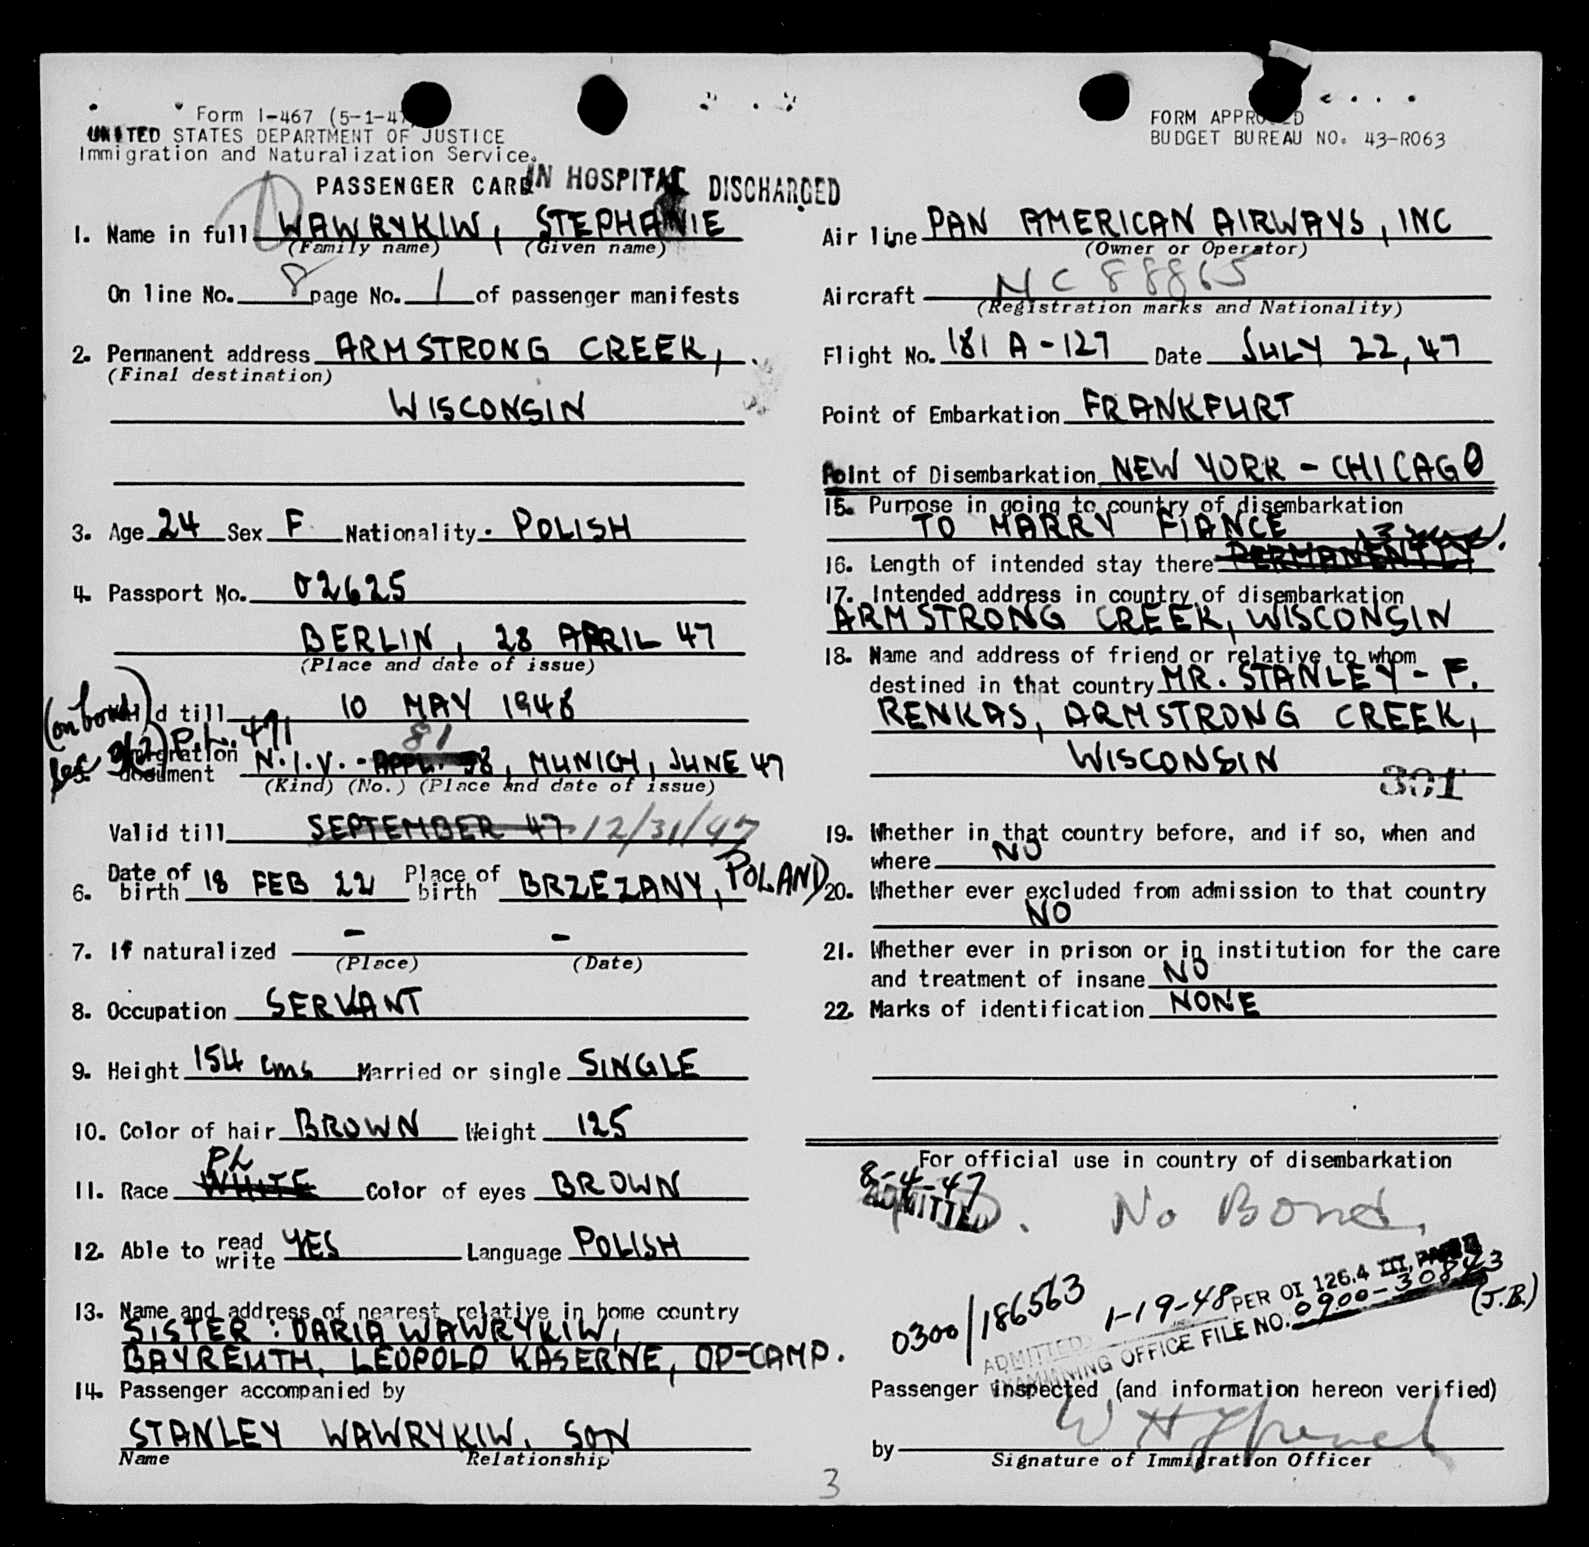 Form I-467 (5-1-47
UNITED STATES DEPARTMENT OF JUSTICE
Immigration and Naturalization Service.
FORM APPROVED
BUDGET BUREAU NO. 43-R063
PASSENGER CARD
IN HOSPITAL DISCHARGED
1. Name in full WAWRYKIW, STEPHANIE
(Family name) (Given name)
On line No. 8 page No. 1 of passenger manifests
2. Permanent address ARMSTRONG CREEK,
(Final destination)
WISCONSIN
3. Age 24 Sex F Nationality POLISH
4. Passport No. 02625
BERLIN, 28 APRIL 47
(Place and date of issue)
(on bond)
Valid till 10 MAY 1948
sec 3(2) P.L. 471
81
5. Immigration document N.I.V. - APPL. 38, MUNICH, JUNE 47
(Kind) (No.) (Place and date of issue)
Valid till SEPTEMBER 47 12/31/47
6. Date of birth 18 FEB 22 Place of birth BRZEZANY, POLAND
7. If naturalized - -
(Place) (Date)
8. Occupation SERVANT
9. Height 154 cms Married or single SINGLE
10. Color of hair BROWN Weight 125
PL
11. Race WHITE Color of eyes BROWN
12. Able to read write YES Language POLISH
13. Name and address of nearest relative in home country
SISTER: DARIA WAWRYKIW,
BAYREUTH, LEOPOLD KASERNE, DP-CAMP.
14. Passenger accompanied by
STANLEY WAWRYKIW, SON
Name Relationship
Air line PAN AMERICAN AIRWAYS, INC
(Owner or Operator)
Aircraft NC 88865
(Registration marks and Nationality)
Flight No. 181 A-127 Date JULY 22, 47
Point of Embarkation FRANKFURT
Point of Disembarkation NEW YORK - CHICAGO
15. Purpose in going to country of disembarkation
TO MARRY FIANCE
16. Length of intended stay there PERMANENTLY
17. Intended address in country of disembarkation
ARMSTRONG CREEK, WISCONSIN
18. Name and address of friend or relative to whom
destined in that country MR. STANLEY - F.
RENKAS, ARMSTRONG CREEK,
WISCONSIN
301
19. Whether in that country before, and if so, when and
where NO
20. Whether ever excluded from admission to that country
NO
21. Whether ever in prison or in institution for the care
and treatment of insane NO
22. Marks of identification NONE
For official use in country of disembarkation
8-4-47
ADMITTED
No Bond.
0300/186563
1-19-48 PER OI 126.4 III,
ADMITTED
EXAMINING OFFICE FILE NO. 0900-30843
(J.B.)
Passenger inspected (and information hereon verified)
by
Signature of Immigration Officer
3